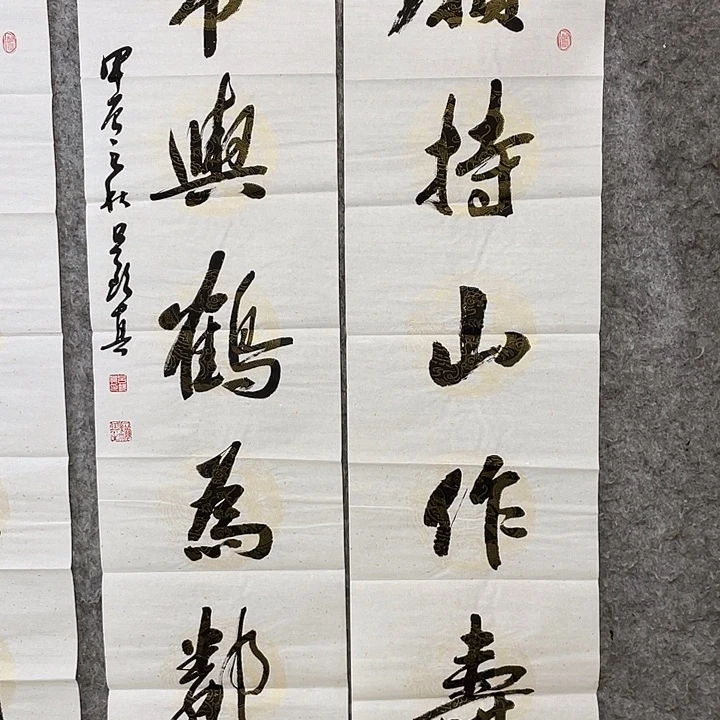 持山作壽
與鶴為鄰
甲辰之秋